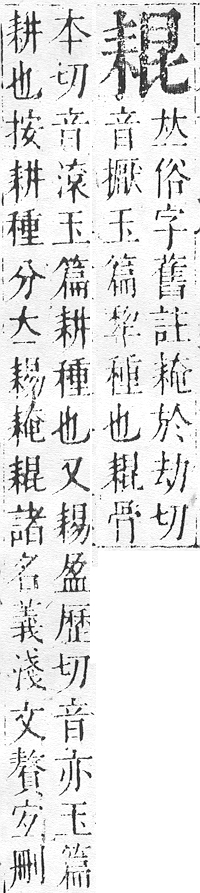 𠀤俗字舊註於劫切
音擫玉篇犂種也骨
本切音滾玉篇耕種也又盈歷切音亦玉篇
耕也按耕種分立諸名義淺文贅宜刪